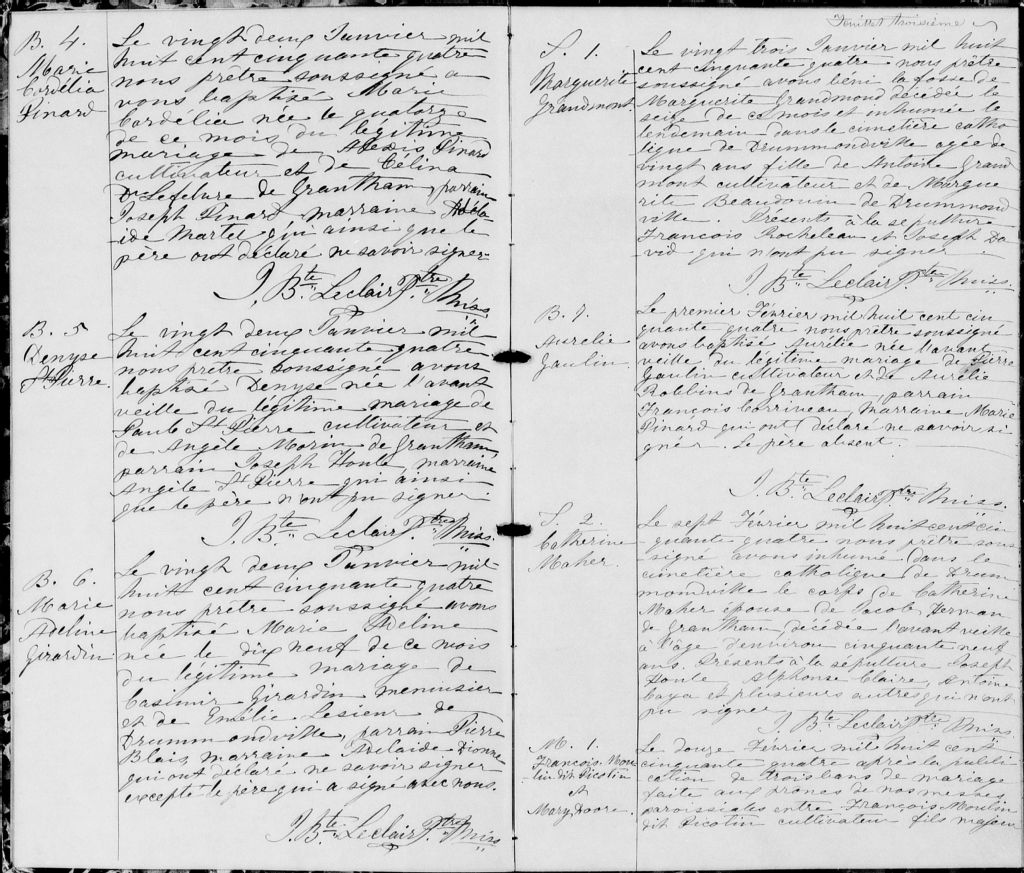 B. 4.
Marie
Cordélia
Pinard
Le vingt deux Janvier mil
huit cent cinquante quatre
nous prêtre soussigné a
vons baptisé Marie
Cordélia née le quatorze
de ce mois du légitime
mariage de Alexis Pinard
cultivateur et de Célina
Lefebvre de Grantham, parrain
Joseph Pinard marraine Adéla
ide Martel qui ainsi que le
père ont déclaré ne savoir signer
J. Bte Leclair Ptre Miss.
B. 5
Denyse
St Pierre.
Le vingt deux Janvier mil
huit cent cinquante quatre
nous prêtre soussigné avons
baptisé Denyse née l'avant
veille du légitime mariage de
Paul St Pierre cultivateur et
de Angèle Morin de Grantham,
parrain Joseph Houle, marraine
Angèle St Pierre qui ainsi
que le père n'ont pu signer.
J. Bte Leclair Ptre Miss.
B. 6.
Marie
Adeline
Girardin
Le vingt deux Janvier mil
huit cent cinquante quatre
nous prêtre soussigné avons
baptisé Marie Adeline
née le dix neuf de ce mois
du légitime mariage de
Casimir Girardin menuisier
et de Emélie Lesieur de
Drummondville, parrain Pierre
Blais, marraine Adelaide Dionne
qui ont déclaré ne savoir signer
excepté le père qui a signé avec nous.
J. Bte Leclair Ptre Miss
Feuillet troisième
S. 1.
Marguerite
Grandmont.
Le vingt trois Janvier mil huit
cent cinquante quatre nous prêtre
soussigné avons béni la fosse de
Marguerite Grandmond décédée le
seize de ce mois et inhumée le
lendemain dans le cimetière catho
lique de Drummondville agée de
vingt ans fille de Antoine Grand
mont cultivateur et de Margue
rite Beaudouin de Drummond
ville. Présents à la sépulture
François Rocheleau et Joseph Da
vid qui n'ont pu signer.
J. Bte Leclair Ptre Miss.
B. 7.
Aurélie
Gaulin.
Le premier Février mil huit cent cin
quante quatre nous prêtre soussigné
avons baptisé Aurélie née l'avant
veille du légitime mariage de Pierre
Gaulin cultivateur et de Aurélie
Robbins de Grantham, parrain
François Corriveau, Marraine Marie
Pinard qui ont déclaré ne savoir si
gner. Le père absent.
J. Bte Leclair Ptre Miss.
S. 2.
Catherine
Maher.
Le sept Février mil huit cent cin
quante quatre nous prêtre sous
signé avons inhumé dans le
cimetière catholique de Drum
mondville le corps de Catherine
Maher épouse de Jacob
de Grantham, décédée l'avant veille
à l'age d'environ cinquante neuf
ans. Présents à la sépulture Joseph
Alphonse Claire, Antoine
et plusieurs autres qui n'ont
pu signer.
J. Bte Leclair Ptre Miss.
M. 1.
François Mou
lin dit Picotin
et
Mary Doore.
Le douze Février mil huit cent
cinquante quatre après la publi
cation de trois bans de mariage
faite aux prones de nos messes
paroissiales entre François Moulin
dit Picotin cultivateur fils majeur